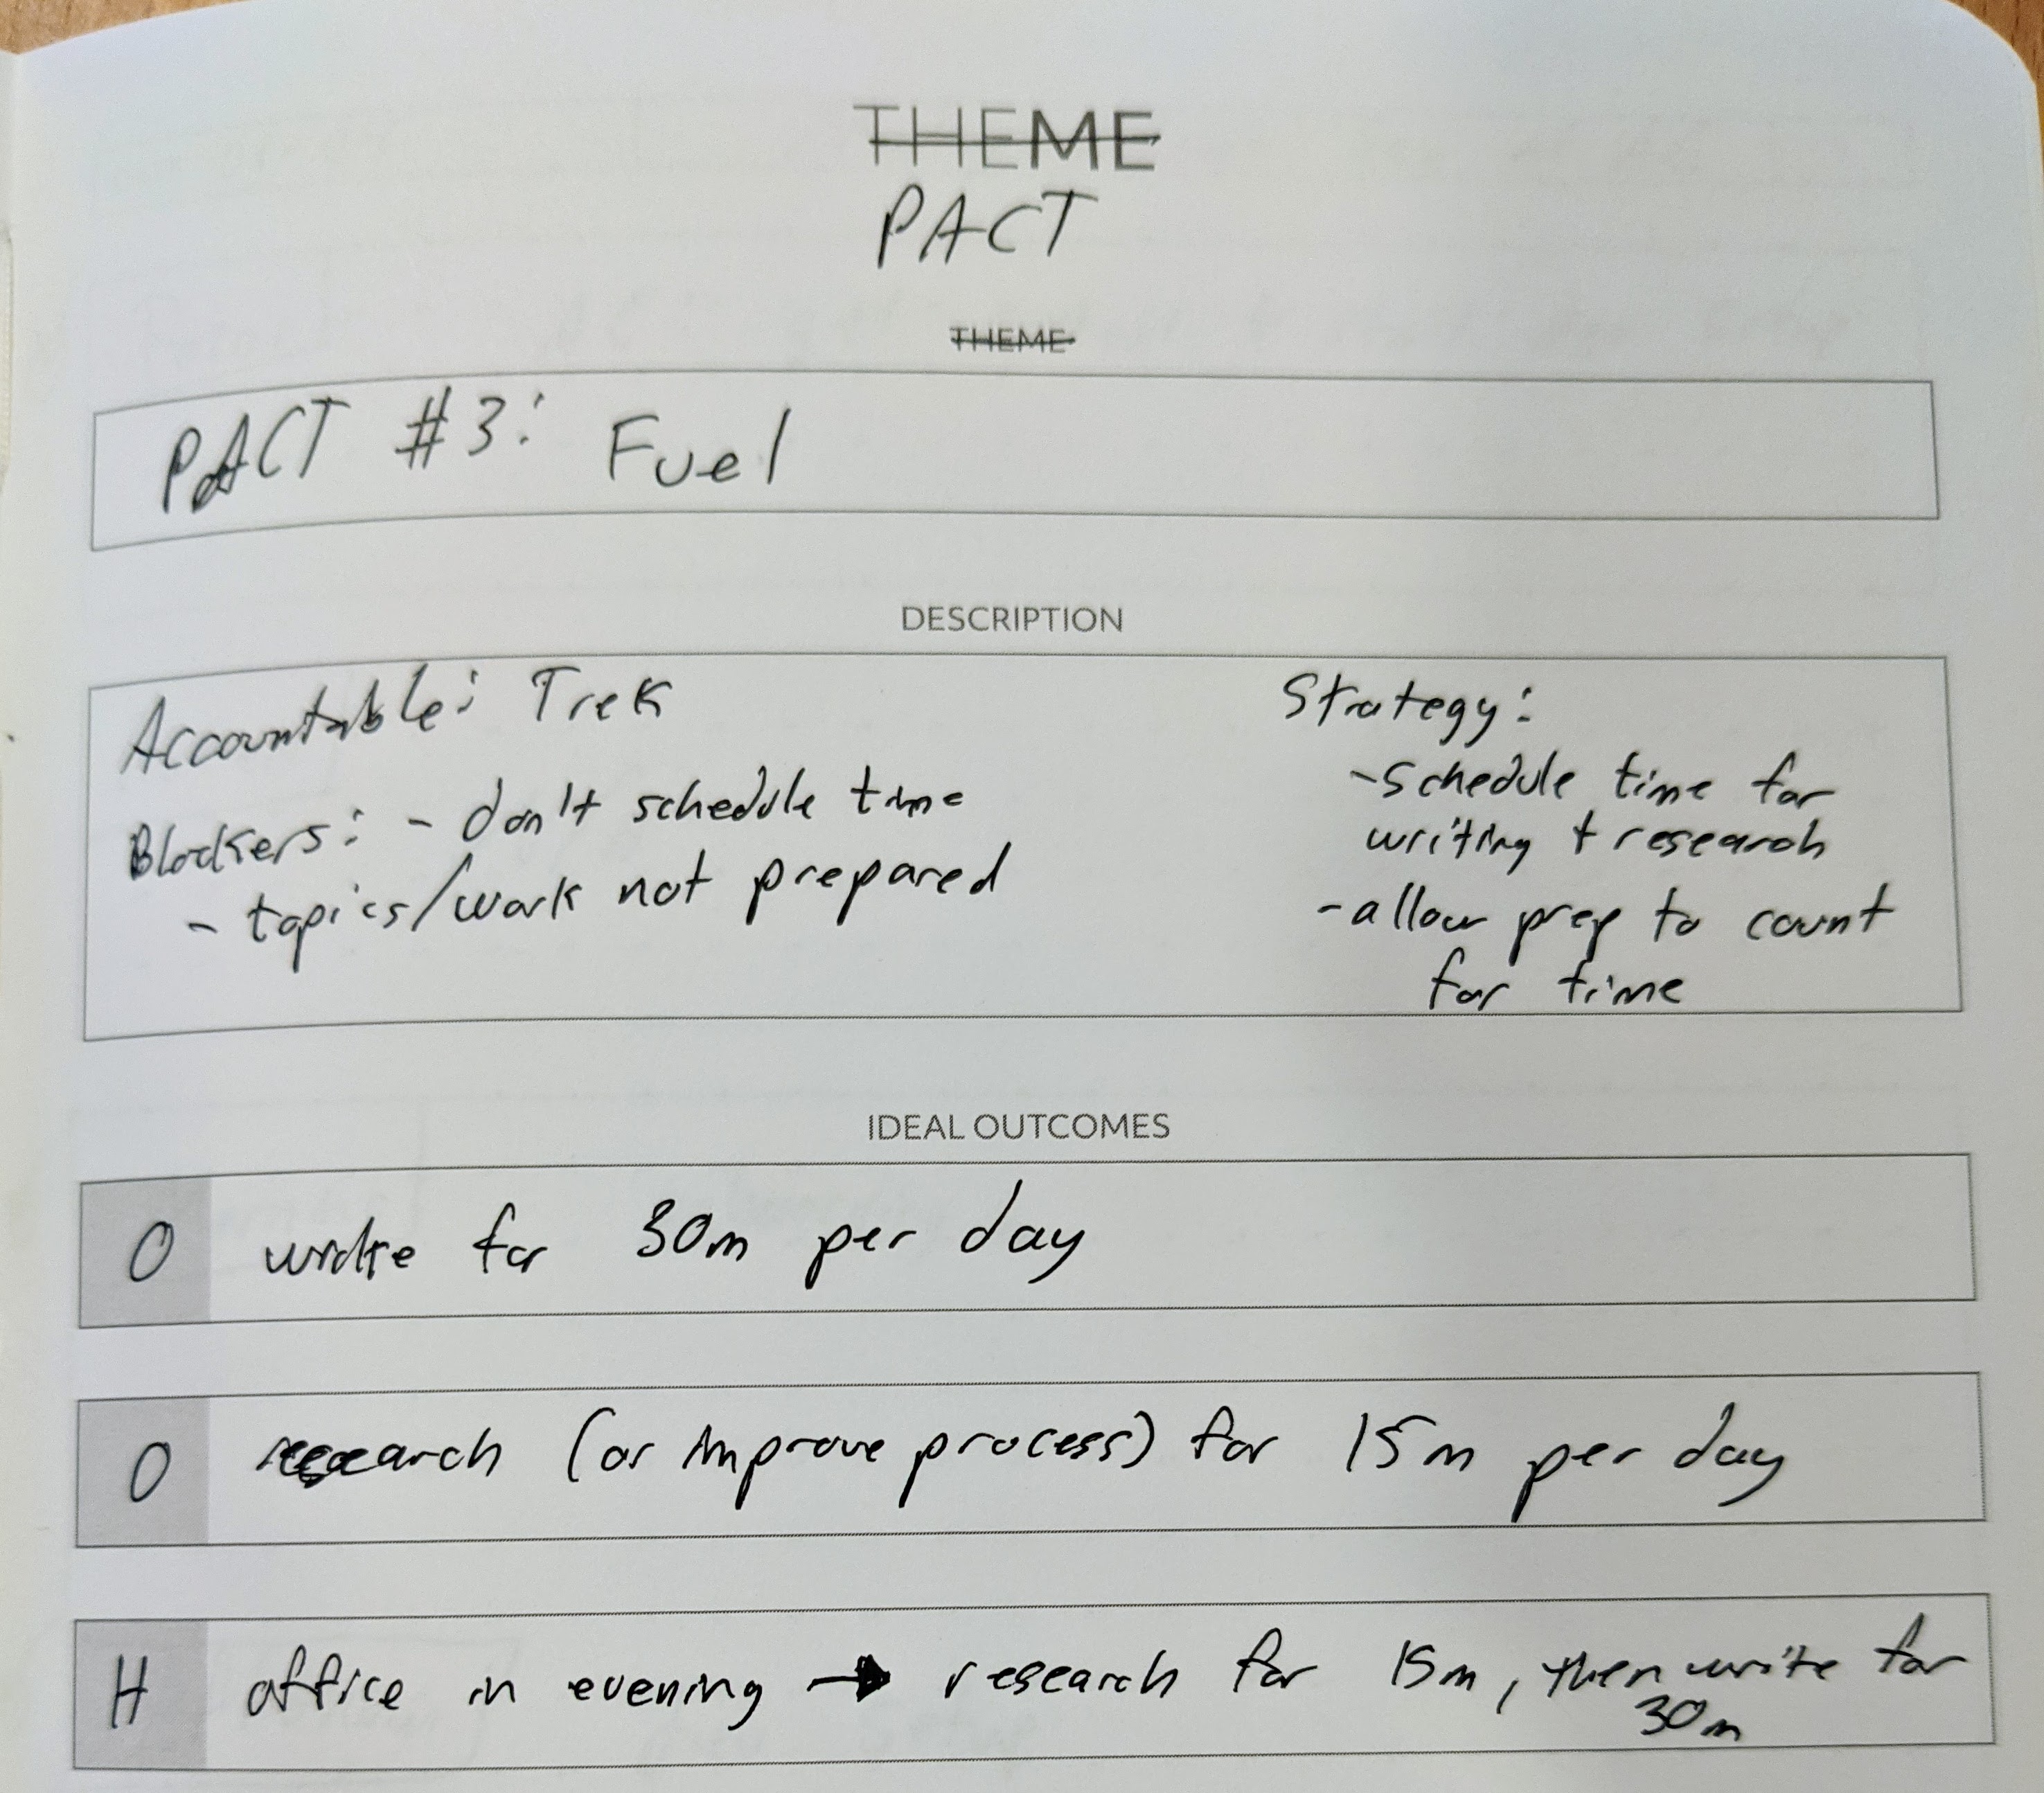 THEME
PACT
THEME
PACT #3: Fuel
DESCRIPTION
Accountable: Trek
Blockers: - don't schedule time
- topics/work not prepared
Strategy:
- schedule time for
writing + research
- allow prep to count
for time
IDEAL OUTCOMES
O write for 30m per day
O research (or improve process) for 15m per day
H office in evening → research for 15m, then write for
30m